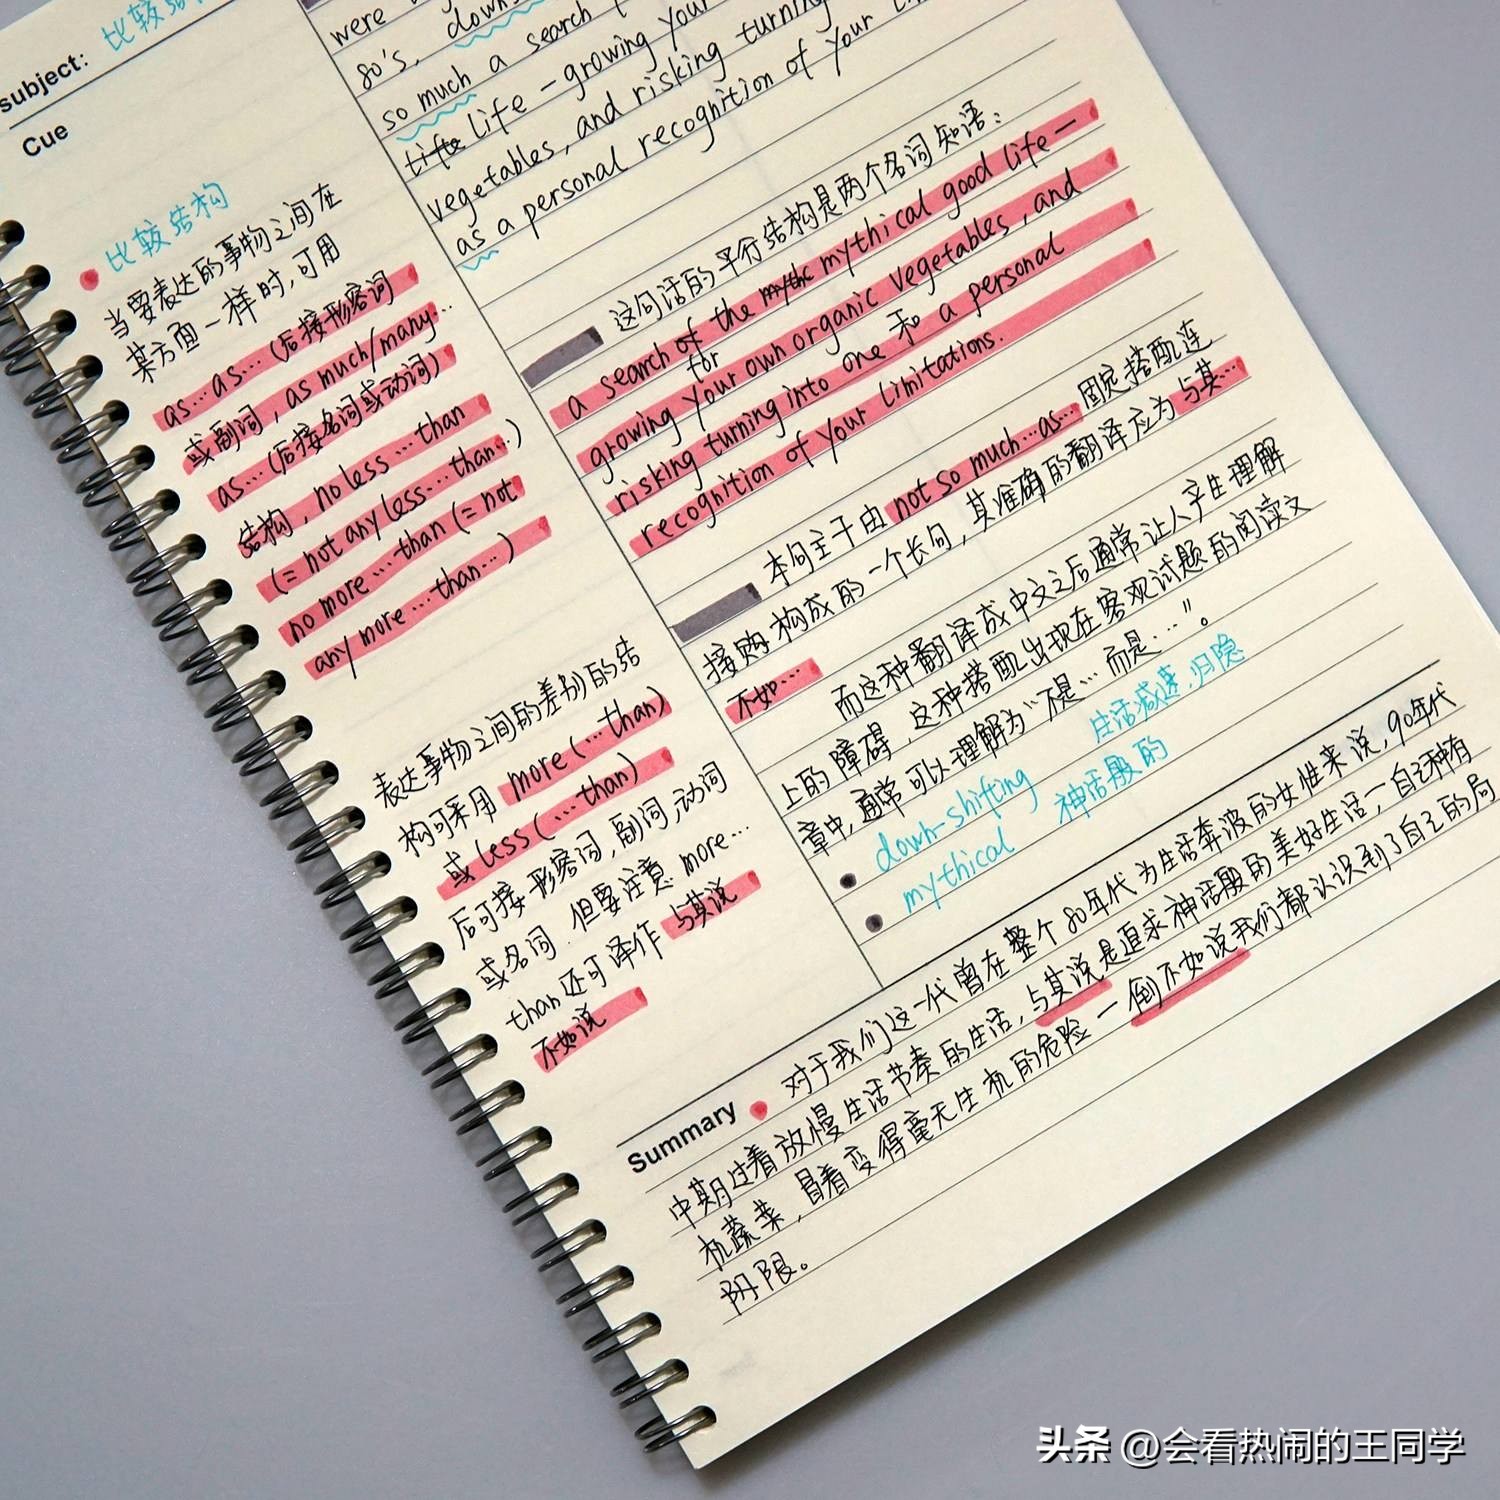 subject: 比较结
Cue
• 比较结构
当要表达的事物之间在
某方面一样时,可用
as…as…(后接形容词
或副词, as much/many…
as…(后接名词或动词)
结构, no less…than
(= not any less…than…)
no more…than (= not
any more…than…)
表达事物之间的差别的结
构可采用 more (…than)
或 less (…than)
后可接形容词,副词,动词
或名词 但要注意 more…
than 还可译作 与其说
不如说
were
80's, down
so much a search
life – growing your
vegetables, and risking turning
as a personal recognition of your
这句话的平行结构是两个名词短语:
a search of the mythical good life —
for
growing your own organic vegetables, and
risking turning into one 和 a personal
recognition of your limitations.
本句主干由 not so much…as… 固定搭配连
接购构成的一个长句, 其准确的翻译应为 与其…
不如…
而这种翻译成中文之后通常让人产生理解
上的障碍, 这种搭配出现在客观试题的阅读文
章中,通常可以理解为"不是…而是…"。
• down-shifting 生活减速,归隐
• mythical 神话般的
Summary
• 对于我们这一代曾在整个80年代为生活奔波的女性来说,90年代
中期过着放慢生活节奏的生活,与其说是追求神话般的美好生活—自己种有
机蔬菜,冒着变得毫无生机的危险—倒不如说我们都认识到了自己的局
限。
头条 @会看热闹的王同学